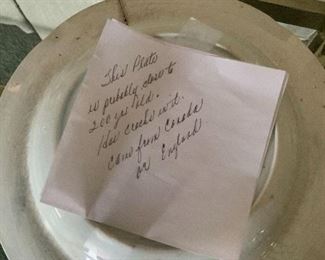 This Plate
is probably close to
200 yrs old.
Has cracks in it.
Came from Canada
or England